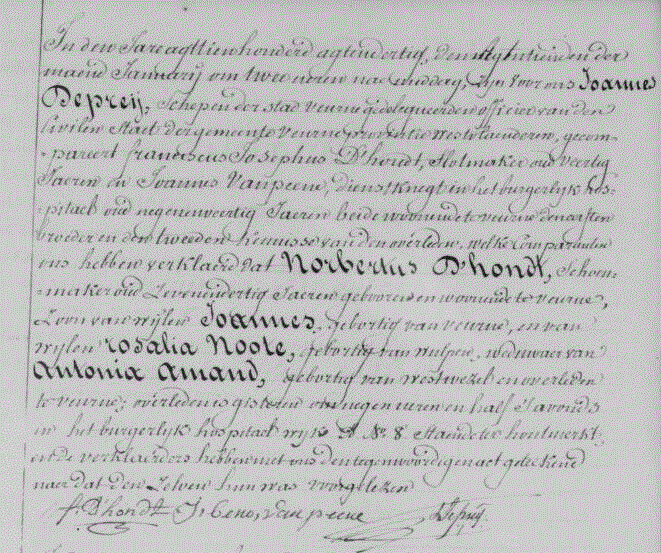 In den Jare agttien honderd agtendertig, den negentienden der
maend Januarij om twee uren na middag, zyn voor ons Joannes
Depreij, Schepen der stad veurne gedelegueerden officier van den
Civilen Staet der gemeente veurne provintie westvlaenderen, gecom-
-pareert franciscus Josephus D'hondt, Slotmaker oud veertig
Jaeren en Joannes Vanpeene, dienstknegt in het burgerlyk hos-
-pitael oud negenenveertig Jaeren beide woonende te veurne den eersten
broeder en den tweeden kennisse van den overleden, welke Comparanten
ons hebben verklaerd dat Norbertus D'hondt, Schoen-
-maker oud Zevenendertig Jaeren gebooren en woonende te veurne,
Zoon van wylen Joannes, gebortig van veurne, en van
wylen rosalia Noote, gebortig van wulpen, weduwaer van
Antonia Amand, gebortig van westvezel en overleden
te veurne; overleden is gisteren om negen euren en half s'avonds
in het burgerlyk hospitael wyk A N.r 8. Staende ter houtmerkt,
en de verklaerders hebben met ons den tegenwoordigen act geteekend
naer dat den Zelven hun was voorgelezen
f D'hondt J. vanpeene Deprey.